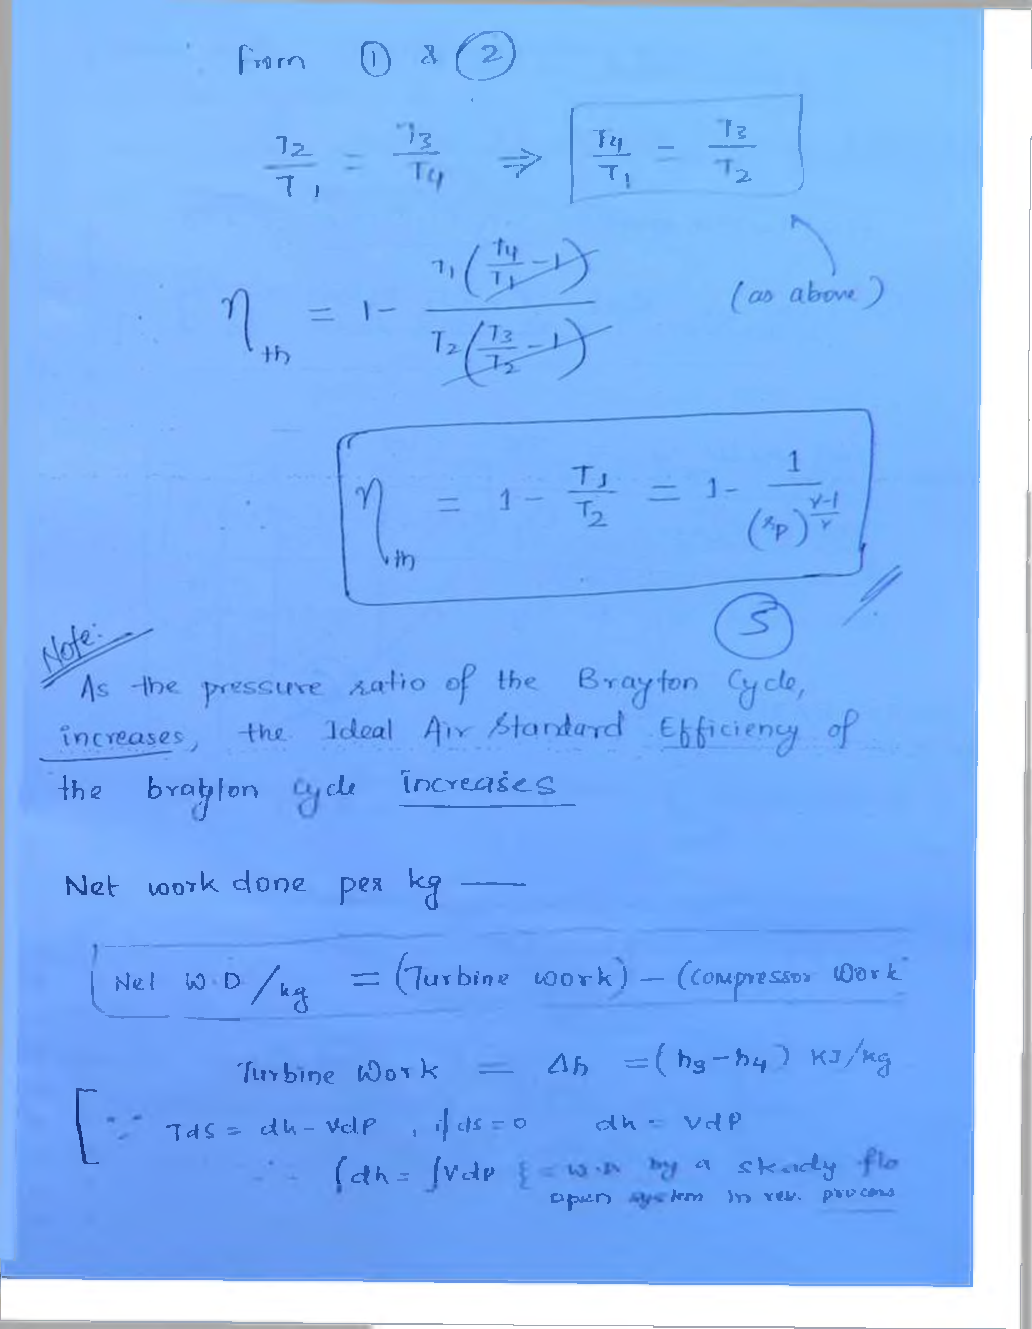 from ① & ②
T2/T1 = T3/T4 ⇒ T4/T1 = T3/T2
(as above)
η_th = 1 - T1(T4/T1 - 1) / T2(T3/T2 - 1)
η_th = 1 - T1/T2 = 1 - 1/(rp)^(γ-1/γ)
③
Note:
As the pressure ratio of the Brayton Cycle,
increases, the Ideal Air Standard Efficiency of
the brayton cycle increases
Net work done per kg —
Net W.D/kg = (Turbine work) - (Compressor Work
Turbine Work = Δh = (h3 - h4) KJ/kg
[∵ Tds = dh - vdP, if ds = 0 dh = vdP
∴ ∫dh = ∫vdp { = W.D by a steady flo
open system in rev. process